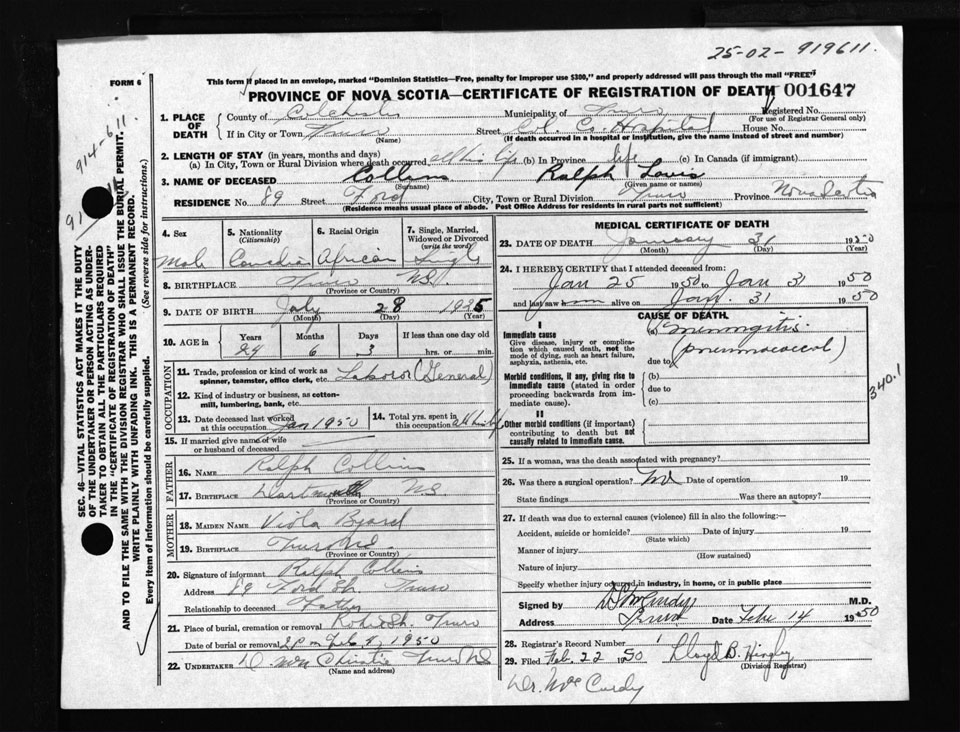 25-02- 919611.
FORM 6
This form if placed in an envelope, marked "Dominion Statistics—Free, penalty for improper use $300," and properly addressed will pass through the mail "FREE"
PROVINCE OF NOVA SCOTIA—CERTIFICATE OF REGISTRATION OF DEATH 001647
1. PLACE OF DEATH
County of Colchester Municipality of Truro Registered No.
(For use of Registrar General only)
If in City or Town Truro Street Col. Co. Hospital House No.
(Name) (If death occurred in a hospital or institution, give the name instead of street and number)
2. LENGTH OF STAY (in years, months and days)
(a) In City, Town or Rural Division where death occurred all his life (b) In Province life (c) In Canada (if immigrant)
3. NAME OF DECEASED Collins Ralph Louis
(Surname) (Given name or names)
RESIDENCE No. 89 Street Ford City, Town or Rural Division Truro Province Nova Scotia
(Residence means usual place of abode. Post Office Address for residents in rural parts not sufficient)
4. Sex Male
5. Nationality (Citizenship) Canadian
6. Racial Origin African
7. Single, Married, Widowed or Divorced (write the word) Single
8. BIRTHPLACE Truro NS
(Province or Country)
9. DATE OF BIRTH July 28 1925
(Month) (Day) (Year)
10. AGE in Years Months Days If less than one day old
24 6 3 hrs. or min.
OCCUPATION
11. Trade, profession or kind of work as spinner, teamster, office clerk, etc. Laborer (General)
12. Kind of industry or business, as cotton-mill, lumbering, bank, etc.
13. Date deceased last worked at this occupation Jan 1950
14. Total yrs. spent in this occupation All his life
15. If married give name of wife or husband of deceased
FATHER
16. NAME Ralph Collins
17. BIRTHPLACE Dartmouth NS.
(Province or Country)
MOTHER
18. MAIDEN NAME Viola Byard
19. BIRTHPLACE Truro NS
(Province or Country)
20. Signature of informant Ralph Collins
Address 89 Ford St. Truro
Relationship to deceased Father
21. Place of burial, cremation or removal Robie St. Truro
Date of burial or removal 1950
22. UNDERTAKER Christie Truro NS
(Name and address)
MEDICAL CERTIFICATE OF DEATH
23. DATE OF DEATH January 31 1950
(Month) (Day)
24. I HEREBY CERTIFY that I attended deceased from:
Jan 25 1950 to Jan 31 1950
and last saw alive on Jan. 31 1950
CAUSE OF DEATH
I
Immediate cause
Give disease, injury or complication which caused death, not the mode of dying, such as heart failure, asphyxia, asthenia, etc.
(a) Meningitis
due to (pneumococcal)
Morbid conditions, if any, giving rise to immediate cause (stated in order proceeding backwards from immediate cause).
(b)
due to
(c)
340.1
II
Other morbid conditions (if important) contributing to death but not causally related to immediate cause.
25. If a woman, was the death associated with pregnancy?
26. Was there a surgical operation? No Date of operation 19
State findings Was there an autopsy?
27. If death was due to external causes (violence) fill in also the following:—
Accident, suicide or homicide? Date of injury 19
(State which)
Manner of injury
(How sustained)
Nature of injury
Specify whether injury occurred in industry, in home, or in public place
Signed by McCurdy M.D.
Address Truro Date Feb 14 1950
28. Registrar's Record Number
29. Filed Feb. 22 1950 Lloyd B. Hingley
(Division Registrar)
Dr. McCurdy
914-611.
91
SEC. 46—VITAL STATISTICS ACT MAKES IT THE DUTY
OF THE UNDERTAKER OR PERSON ACTING AS UNDER-
TAKER TO OBTAIN ALL THE PARTICULARS REQUIRED
IN THE "CERTIFICATE OF REGISTRATION OF DEATH"
AND TO FILE THE SAME WITH THE DIVISION REGISTRAR WHO SHALL ISSUE THE BURIAL PERMIT.
WRITE PLAINLY WITH UNFADING INK. THIS IS A PERMANENT RECORD.
Every item of information should be carefully supplied. (See reverse side for instructions.)